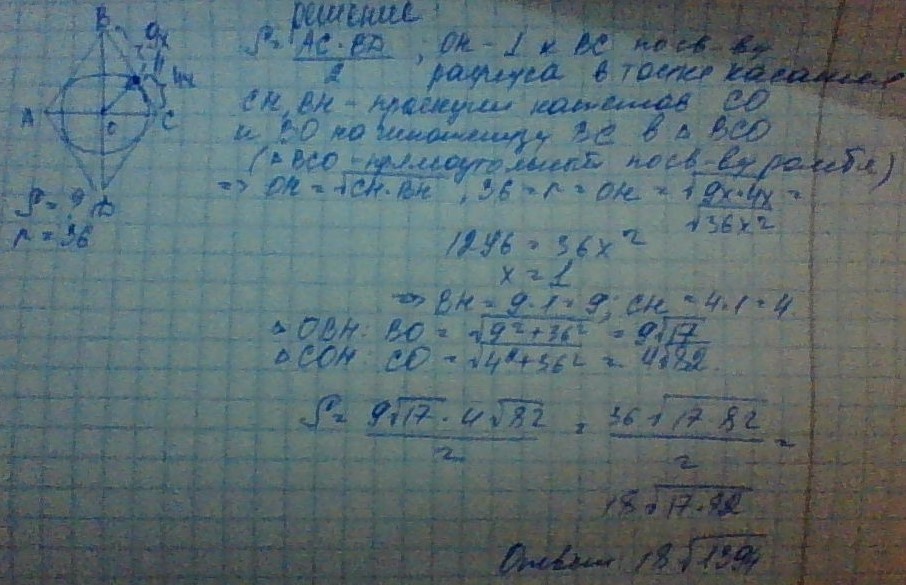 решение
S = AC·BD / 2 ; OH - ⊥ к BC по св-ву
радиуса в точке касания
CH, BH - проекции катетов CO
и BO на гипотенузу BC в △ BCO
(△ BCO - прямоугольный по св-ву ромба)
=> OH = √CH·BH , 36 = r = OH = √9x·4x =
√36x²
1296 = 36x²
x = 1
=> BH = 9·1 = 9; CH = 4·1 = 4
△ OBH: BO = √9²+36² = 9√17
△ COH: CO = √4²+36² = 4√82.
S = 9√17·4√82 / 2 = 36√17·82 / 2 =
18√17·82
Ответ: 18√1394
B
9x
H
4x
A
O
C
D
S = ?
r = 36